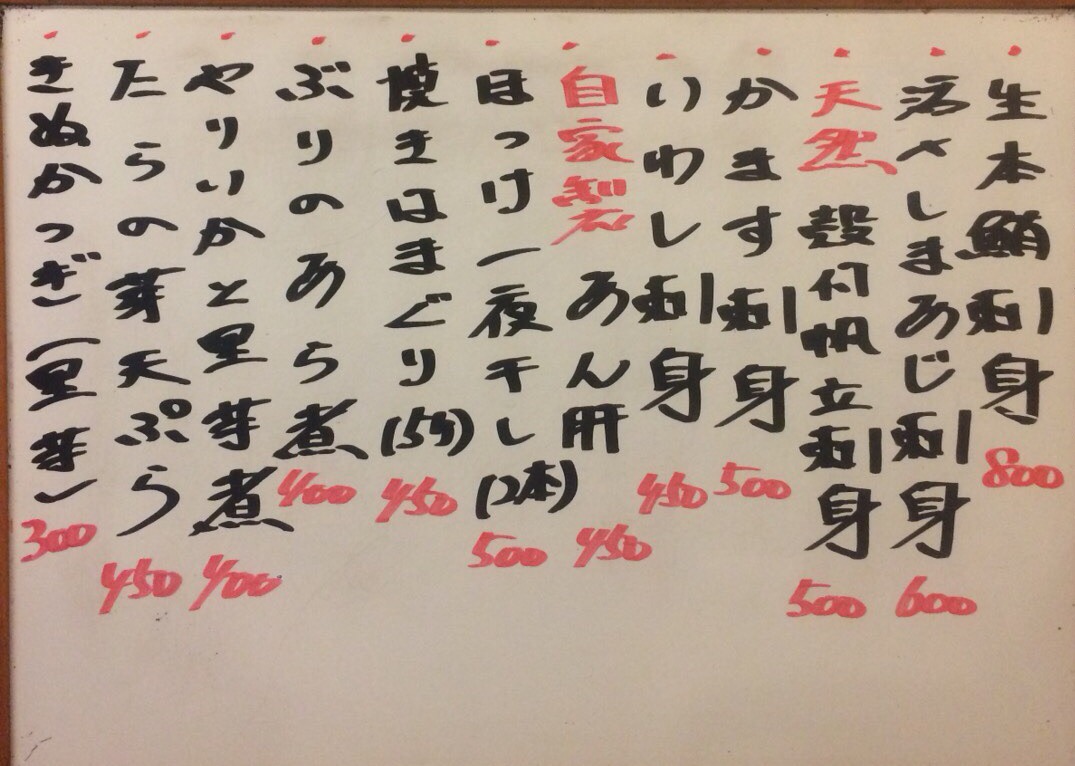 生本鮪刺身 800
活〆しまあじ刺身 600
天然 殻付帆立刺身 500
かます刺身 500
いわし刺身 450
自家製 あん肝 450
ほっけ一夜干し(2本) 500
焼きはまぐり(5ケ) 450
ぶりのあら煮 400
やりいかと里芋煮 400
たらの芽天ぷら 450
きぬかつぎ(里芋) 300